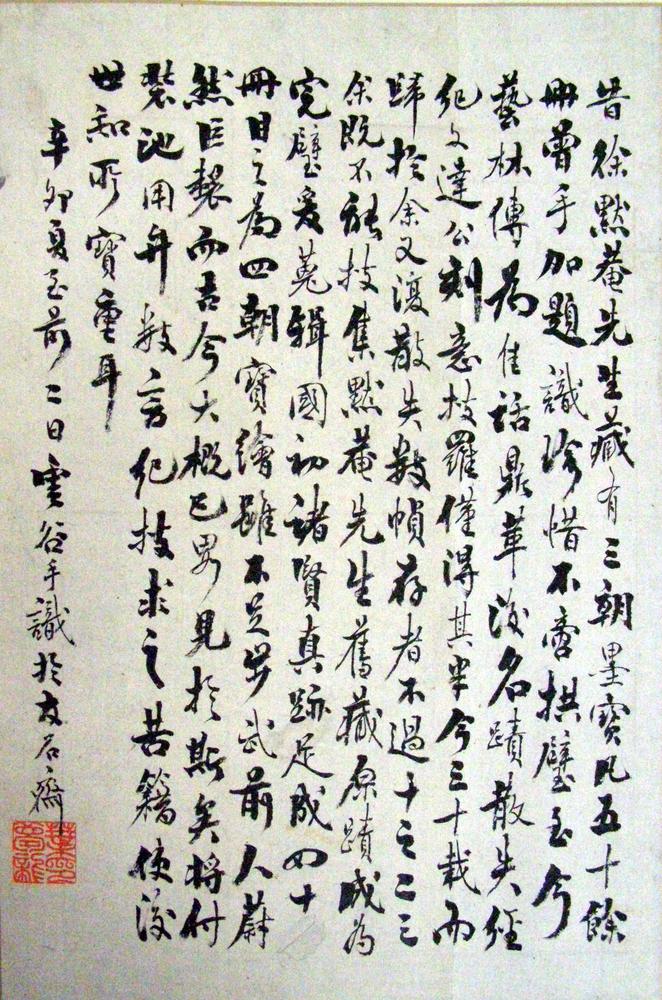 昔徐默菴先生藏有三朝墨寶凡五十餘
冊曾手加題識珍惜不啻拱璧至今
藝林傳為佳話鼎革後名蹟散失經
紀文達公刻意搜羅僅得其半今三十載而
歸於余又復散失數幀存者不過十之二三
余既不能搜集默菴先生舊藏原蹟成為
完璧爰蒐輯國初諸賢真跡足成四十
冊目之為四朝寶繪雖不足步武前人蔚
然巨製而古今大概已畧見於斯矣將付
裝池用弁數言紀搜求之苦籍使後
世知所寶重耳
辛卯夏至前二日雲谷手識於友石齋